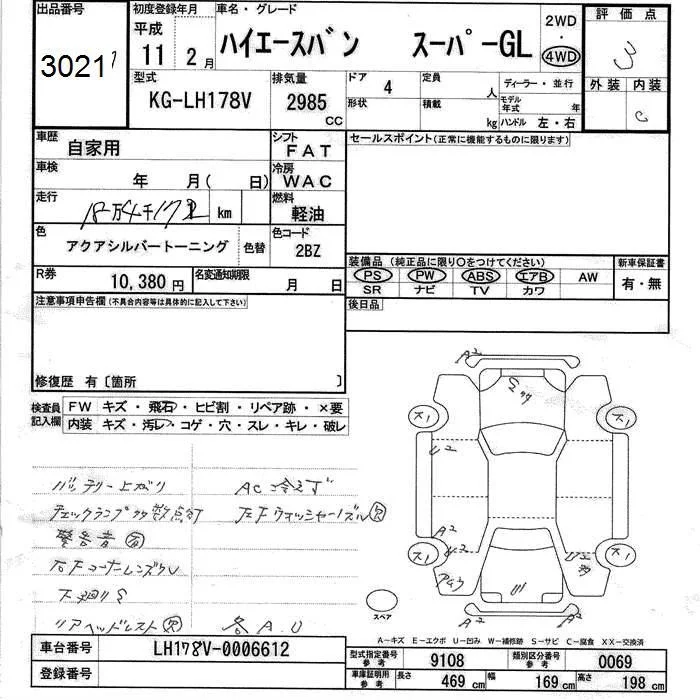 出品番号 初度登録年月 車名・グレード 2WD・4WD 評価点
30217 平成 11 2月 ハイエースバン スーパーGL 3
型式 排気量 ドア 4 定員 人 ディーラー・並行 外装 内装
KG-LH178V 2985cc 形状 積載 kg モデル年式 年 ハンドル 左・右 C
車歴 自家用 シフト FAT セールスポイント(正常に機能するものに限ります)
車検 年 月( 日) 冷房 WAC
走行 18万4千172 km 燃料 軽油
色 アクアシルバートーニング 色替 色コード 2BZ
装備品(純正品に限り○をつけてください) 新車保証書
PS PW ABS エアB AW 有・無
SR ナビ TV カワ
R券 10,380円 名変通知期限 月 日
後日品
注意事項申告欄(不具合内容等は具体的に記入して下さい)
修復歴 有〔箇所 〕
検査員記入欄 FW キズ・飛石・ヒビ割・リペア跡・×要
内装 キズ・汚レ・コゲ・穴・スレ・キレ・破レ
バッテリー上がり AC冷えず
チェックランプ多数点灯 左Fウォッシャーノズル欠
警告音有
右FコーナーレンズワレU
下廻りS
リアヘッドレスト欠 各A.U
A2
S
ス1 ス1
U2
A2
U2
ス1 ス1
U
A2 A2
スペア
A-キズ E-エクボ U-凹み W-補修跡 S-サビ C-腐食 XX-交換済
車台番号 LH178V-0006612
登録番号
型式指定番号 参考 9108 類別区分番号 参考 0069
車庫証明用 参考 長さ 469cm 幅 169cm 高さ 198cm